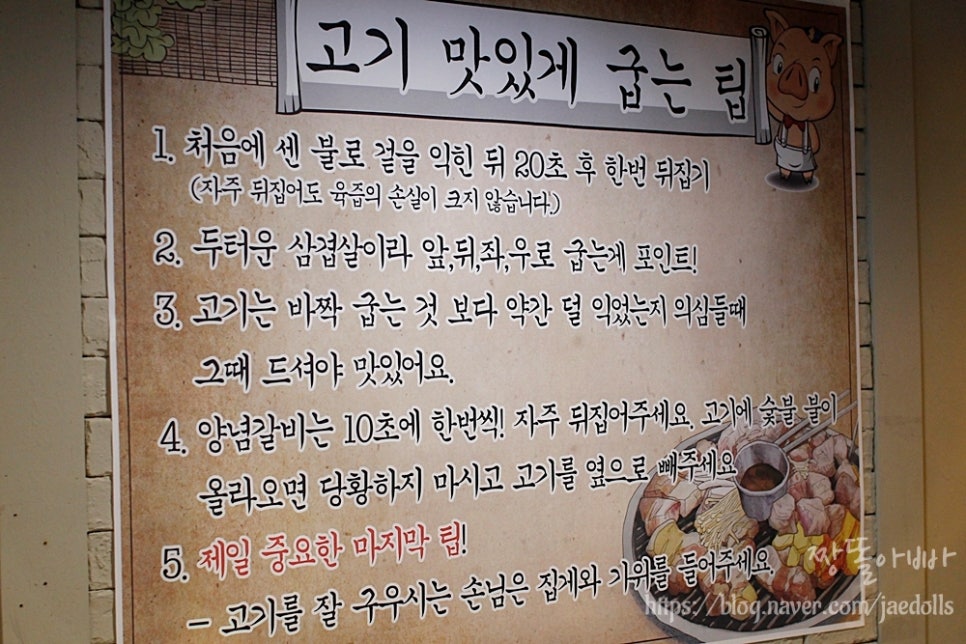 고기 맛있게 굽는 팁
1. 처음에 센 불로 겉을 익힌 뒤 20초 후 한번 뒤집기
(자주 뒤집어도 육즙의 손실이 크지 않습니다.)
2. 두터운 삼겹살이라 앞,뒤,좌,우로 굽는게 포인트!
3. 고기는 바짝 굽는 것 보다 약간 덜 익었는지 의심들때
그때 드셔야 맛있어요.
4. 양념갈비는 10초에 한번씩! 자주 뒤집어주세요. 고기에 숯불 불이
올라오면 당황하지 마시고 고기를 옆으로 빼주세요
5. 제일 중요한 마지막 팁!
- 고기를 잘 구우시는 손님은 집게와 가위를 들어주세요.
짱똘아빠
https://blog.naver.com/jaedolls